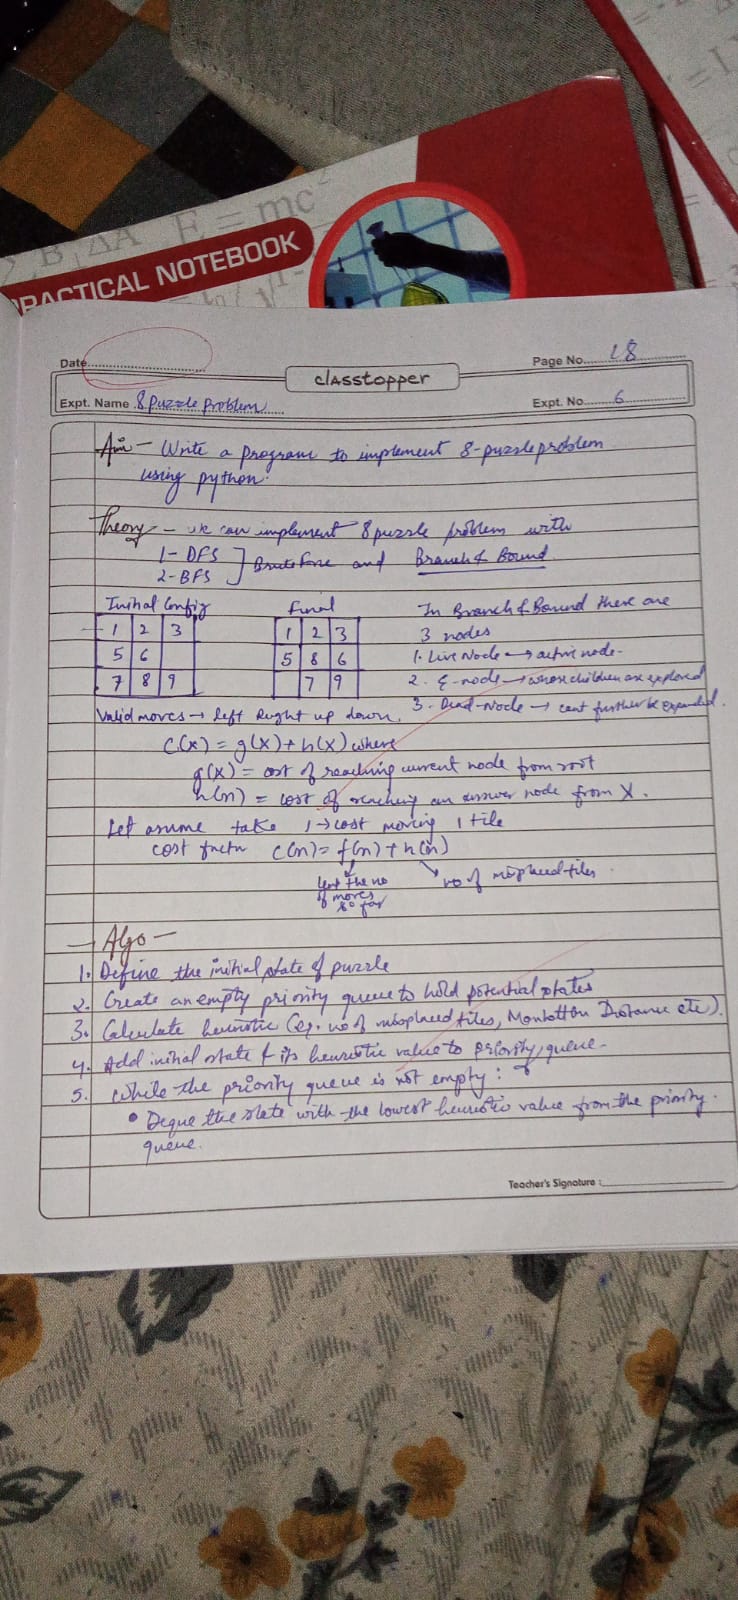 E = mc²
B ΔA
PRACTICAL NOTEBOOK
Date
classtopper
Page No. 18
Expt. Name 8 Puzzle Problem
Expt. No. 6
Aim - Write a program to implement 8-puzzle problem
using python.
Theory - we can implement 8 puzzle problem with
1- DFS
2- BFS ] Brute Force and Branch & Bound
Initial Config
1 2 3
5 6
7 8 9
Final
1 2 3
5 8 6
7 9
In Branch & Bound there are
3 nodes
1. Live Node → active node.
2. E-node → whose children are explored
3. Dead-Node → cant further be expanded.
Valid moves → left Right up down.
C(x) = g(x) + h(x) where
g(x) = cost of reaching current node from root
h(n) = cost of reaching an answer node from X.
Let assume take 1 → cost moving 1 tile
cost c(n) = f(n) + h(n)
the no
of moves
so far
no of misplaced tiles
Algo -
1. Define the initial state of puzzle
2. Create an empty priority queue to hold potential states
3. Calculate heuristic (eg. no of misplaced tiles, Distance etc).
4. Add initial state & its heuristic value to priority queue.
5. While the priority queue is not empty:
• Deque the state with the lowest heuristic value from the priority
queue.
Teacher's Signature :